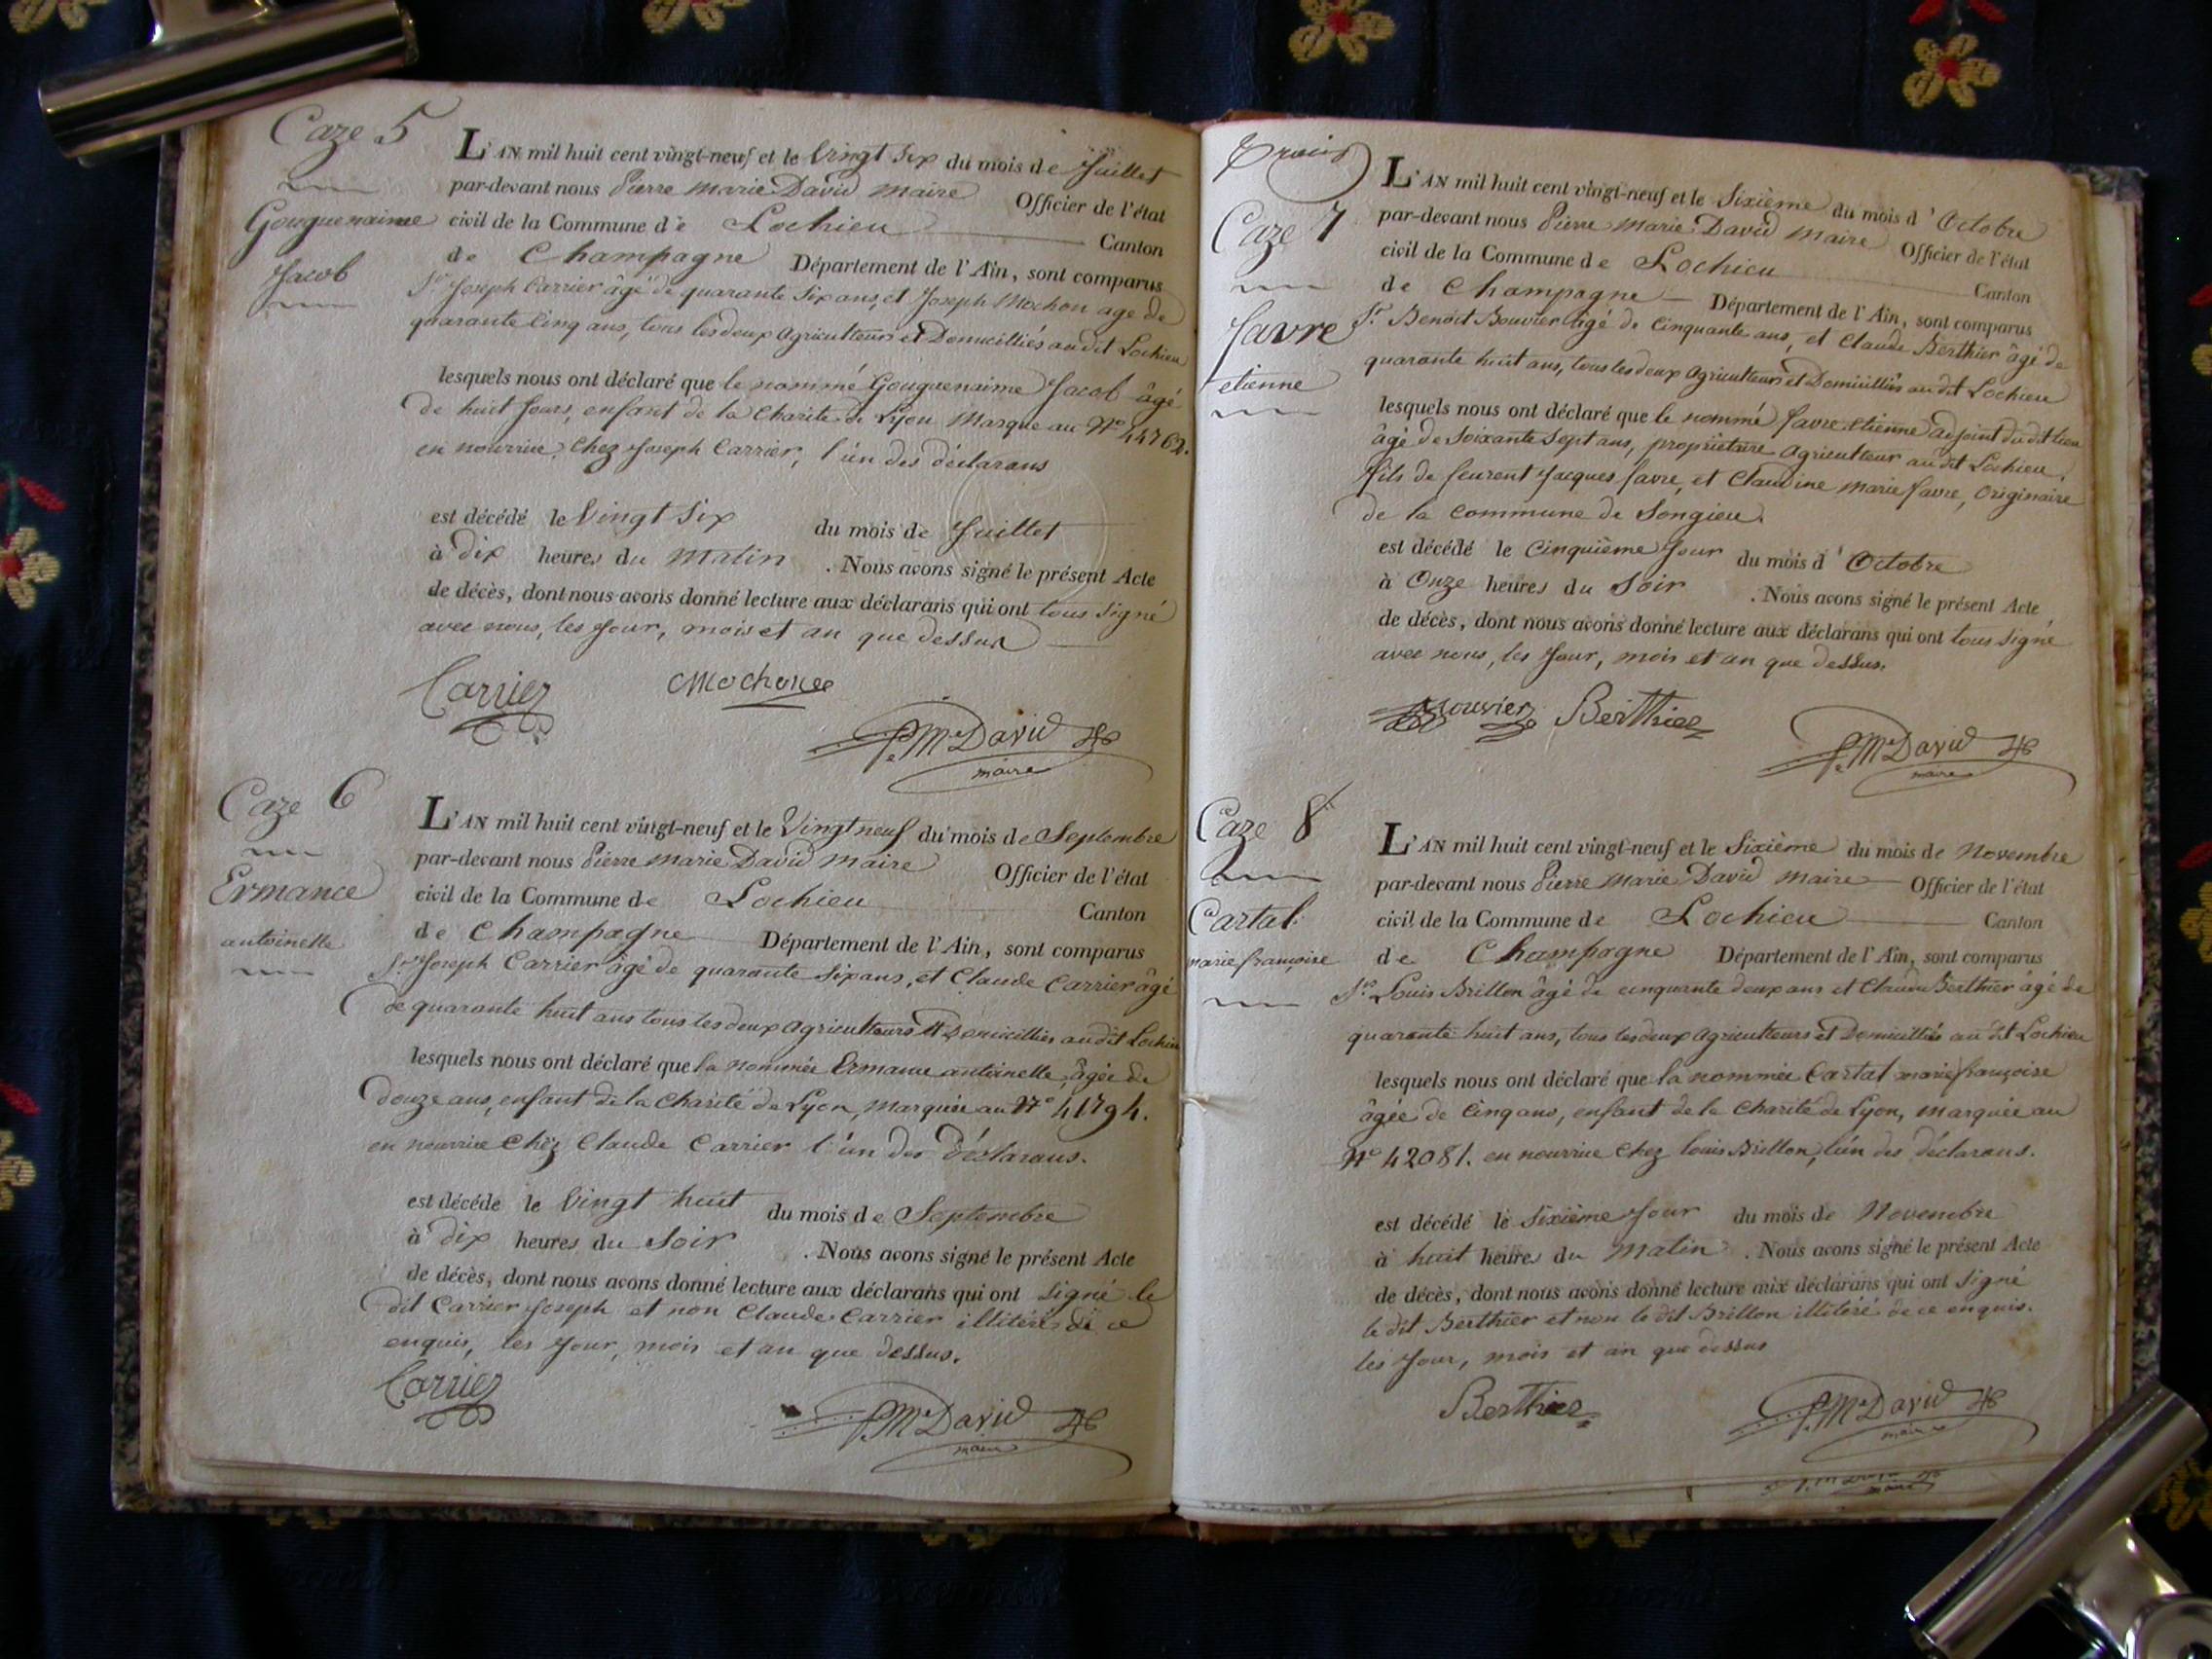 Caze 5
Gouguenaime
Jacob
L'AN mil huit cent vingt-neuf et le Vingt Six du mois de Juillet
par-devant nous Pierre Marie David Maire Officier de l'état
civil de la Commune de Lochieu Canton
de Champagne Département de l'Ain, sont comparus
Sr Joseph Carrier âgé de quarante Six ans, et Joseph Mochon age de
quarante Cinq ans, tous les deux agriculteurs et Domicilliés au dit Lochieu
lesquels nous ont déclaré que le nommé Gouguenaime Jacob âgé
de huit Jours, enfant de la Charité de Lyon Marque au No 44762.
en nourrice chez Joseph Carrier, l'un des déclarans
est décédé le Vingt Six du mois de Juillet
à dix heures du Matin . Nous avons signé le présent Acte
de décès, dont nous avons donné lecture aux déclarans qui ont tous Signé
avec nous, les Jour, mois et an que dessus
Carrier Mochon
P.re M.e David
maire
Caze 6
Ermance
antoinette
L'AN mil huit cent vingt-neuf et le Vingt neuf du mois de Septembre
par-devant nous Pierre Marie David Maire Officier de l'état
civil de la Commune de Lochieu Canton
de Champagne Département de l'Ain, sont comparus
Srs Joseph Carrier âgé de quarante Six ans, et Claude Carrier âgé
de quarante huit ans tous les deux agriculteurs et Domicilliés au dit Lochieu
lesquels nous ont déclaré que la nommée Ermance antoinette, âgée de
douze ans, enfant de la Charité de Lyon, Marquée au No 41794.
en nourrice chez Claude Carrier l'un des déclarans.
est décédé le Vingt huit du mois de Septembre
à dix heures du Soir . Nous avons signé le présent Acte
de décès, dont nous avons donné lecture aux déclarans qui ont Signé le
dit Carrier Joseph et non Claude Carrier illitéré de ce
enquis, les Jour, mois et an que dessus.
Carrier
P.re M.e David
maire
Caze 7
favre
etienne
L'AN mil huit cent vingt-neuf et le Sixième du mois d'Octobre
par-devant nous Pierre Marie David Maire Officier de l'état
civil de la Commune de Lochieu Canton
de Champagne Département de l'Ain, sont comparus
Sr Benoit Bouvier âgé de Cinquante ans, et Claude Berthier âgé de
quarante huit ans, tous les deux agriculteurs et Domicilliés au dit Lochieu
lesquels nous ont déclaré que le nommé favre etienne adjoint du dit lieu
âgé de Soixante Sept ans, propriétaire agriculteur au dit Lochieu,
fils de feurent Jacques favre, et Claudine Marie favre, Originaire
de la Commune de Songieu.
est décédé le Cinquième Jour du mois d'Octobre
à Onze heures du Soir . Nous avons signé le présent Acte
de décès, dont nous avons donné lecture aux déclarans qui ont tous Signé
avec nous, les Jour, mois et an que dessus.
Bouvier Berthier
P.re M.e David
maire
Caze 8
Cartal
marie françoise
L'AN mil huit cent vingt-neuf et le Sixième du mois de Novembre
par-devant nous Pierre Marie David Maire Officier de l'état
civil de la Commune de Lochieu Canton
de Champagne Département de l'Ain, sont comparus
Srs Louis Brillon âgé de cinquante deux ans et Claude Berthier âgé de
quarante huit ans, tous les deux agriculteurs et Domicilliés au dit Lochieu
lesquels nous ont déclaré que la nommée Cartal marie françoise
âgée de Cinq ans, enfant de la Charité de Lyon, marquée au
No 42081. en nourrice chez louis Brillon, l'un des déclarans.
est décédé le Sixième Jour du mois de Novembre
à huit heures du Matin . Nous avons signé le présent Acte
de décès, dont nous avons donné lecture aux déclarans qui ont Signé
le dit Berthier et non le dit Brillon illitéré de ce enquis.
les Jour, mois et an que dessus
Berthier
P.re M.e David
maire